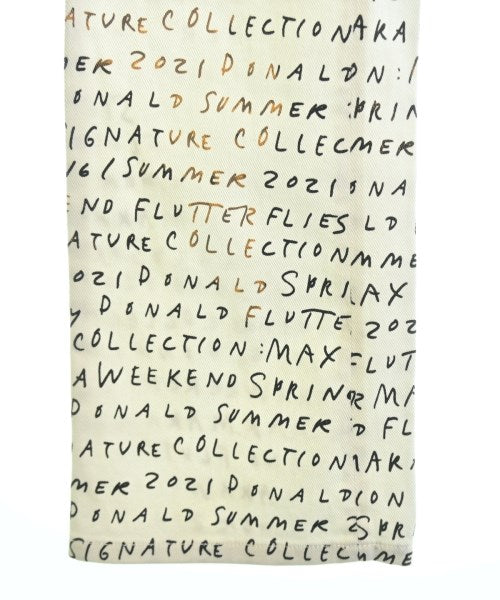 ATURE COLLECTIONAKA
ER 2021 DONALDN:
ONALD SUMMER :PRIN
IGNATURE COLLECMER
16/SUMMER 2021ONA
END FLUTTERFLIES LD
ATURE COLLECTIONMME
2021 DONALD SPRI,AX
Y DONALD FLUTTE 202
COLLECTION:MAX FLUT
A WEEKEND SPRIN MA
DONALD SUMMER D FL
ATURE COLLECTION1AK
MER 2021 DONALDION
DONALD SUMMER SPR
SIGNATURE COLLEC ME